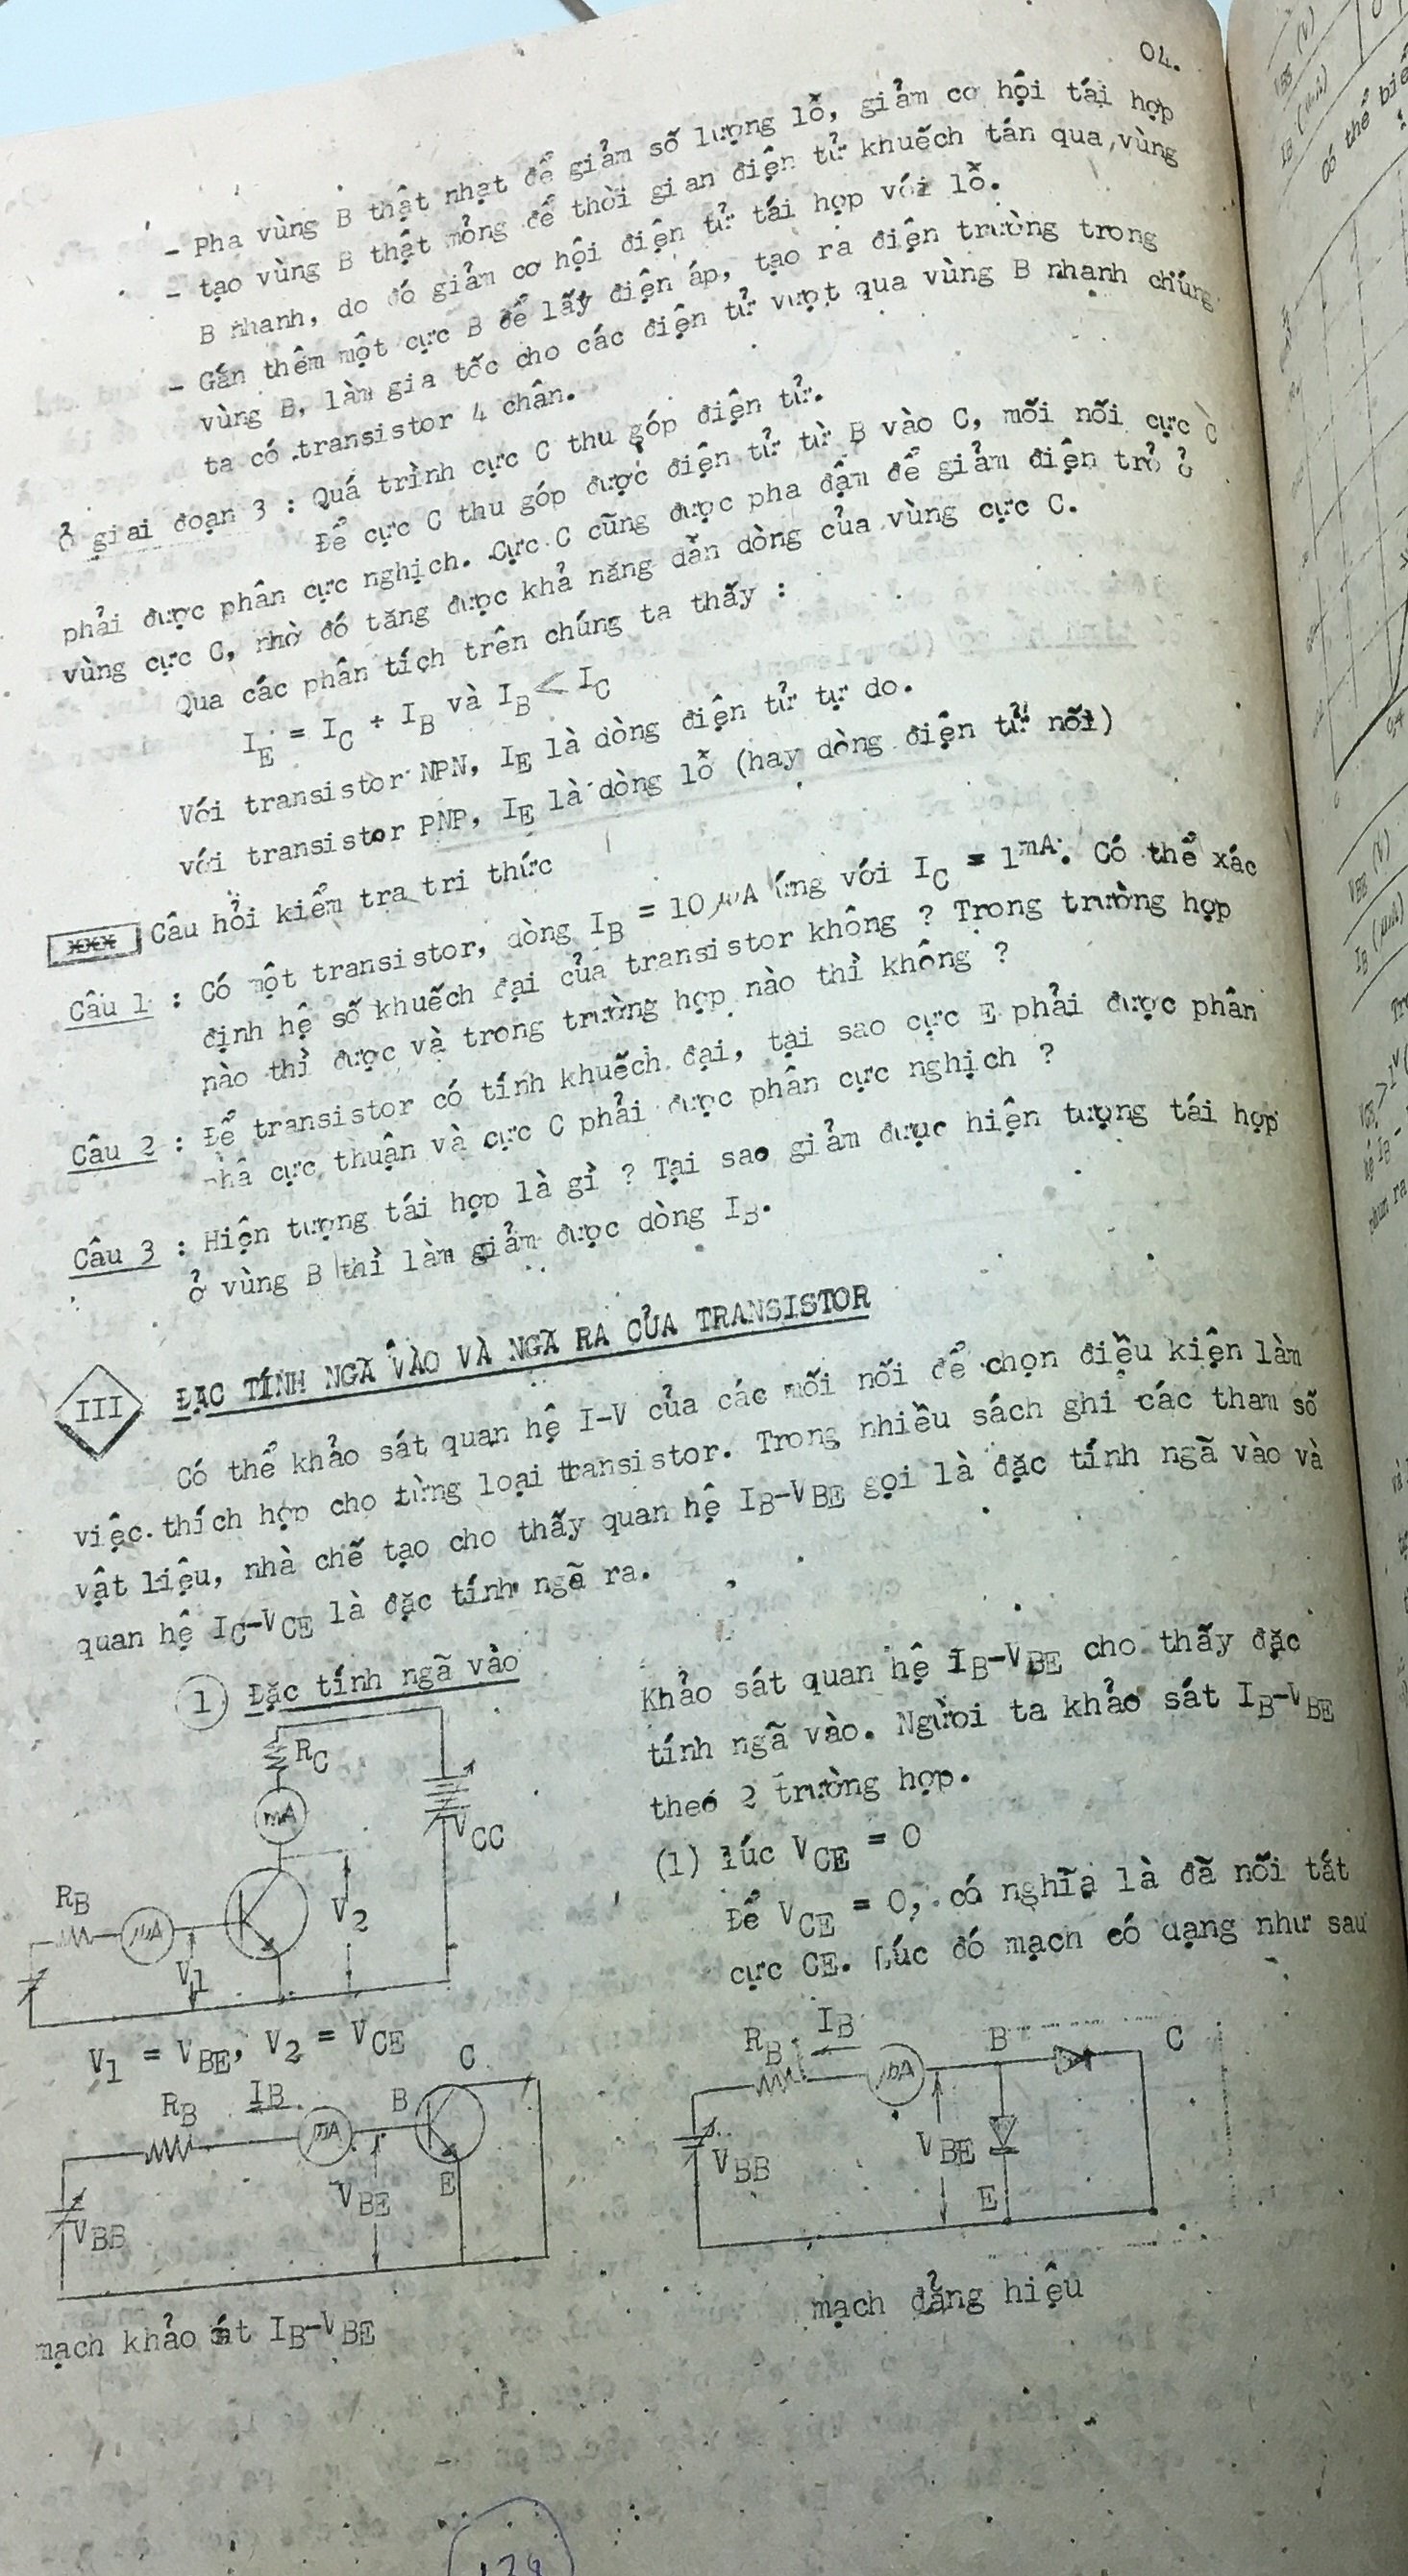 04.
- Pha vùng B thật nhạt để giảm số lượng lỗ, giảm cơ hội tái hợp
- tạo vùng B thật mỏng để thời gian điện tử khuếch tán qua vùng
B nhanh, do đó giảm cơ hội điện tử tái hợp với lỗ.
- Gắn thêm một cực B để lấy điện áp, tạo ra điện trường trong
vùng B, làm gia tốc cho các điện tử vượt qua vùng B nhanh chúng
ta có transistor 4 chân.
Ở giai đoạn 3 : Quá trình cực C thu góp điện tử.
Để cực C thu góp được điện tử từ B vào C, mối nối cực C
phải được phân cực nghịch. Cực C cũng được pha đậm để giảm điện trở ở
vùng cực C, nhờ đó tăng được khả năng dẫn dòng của vùng cực C.
Qua các phân tích trên chúng ta thấy :
IE = IC + IB và IB < IC
Với transistor NPN, IE là dòng điện tử tự do.
với transistor PNP, IE là dòng lỗ (hay dòng điện tử nối)
xxx Câu hỏi kiểm tra tri thức
Câu 1 : Có một transistor, dòng IB = 10 μA ứng với IC = 1mA. Có thể xác
định hệ số khuếch đại của transistor không ? Trong trường hợp
nào thì được và trong trường hợp nào thì không ?
Câu 2 : Để transistor có tính khuếch đại, tại sao cực E phải được phân
cực thuận và cực C phải được phân cực nghịch ?
Câu 3 : Hiện tượng tái hợp là gì ? Tại sao giảm được hiện tượng tái hợp
ở vùng B thì làm giảm được dòng IB.
III ĐẶC TÍNH NGÃ VÀO VÀ NGÃ RA CỦA TRANSISTOR
Có thể khảo sát quan hệ I-V của các mối nối để chọn điều kiện làm
việc thích hợp cho từng loại transistor. Trong nhiều sách ghi các tham số
vật liệu, nhà chế tạo cho thấy quan hệ IB-VBE gọi là đặc tính ngã vào và
quan hệ IC-VCE là đặc tính ngã ra.
1 Đặc tính ngã vào
RC
mA
VCC
RB
μA
V1
V2
V1 = VBE, V2 = VCE
Khảo sát quan hệ IB-VBE cho thấy đặc
tính ngã vào. Người ta khảo sát IB-VBE
theo 2 trường hợp.
(1) lúc VCE = 0
Để VCE = 0, có nghĩa là đã nối tắt
cực CE. Lúc đó mạch có dạng như sau
RB IB μA B C
VBE E
VBB
mạch khảo sát IB-VBE
RB IB μA B C
VBB VBE
E
mạch đẳng hiệu